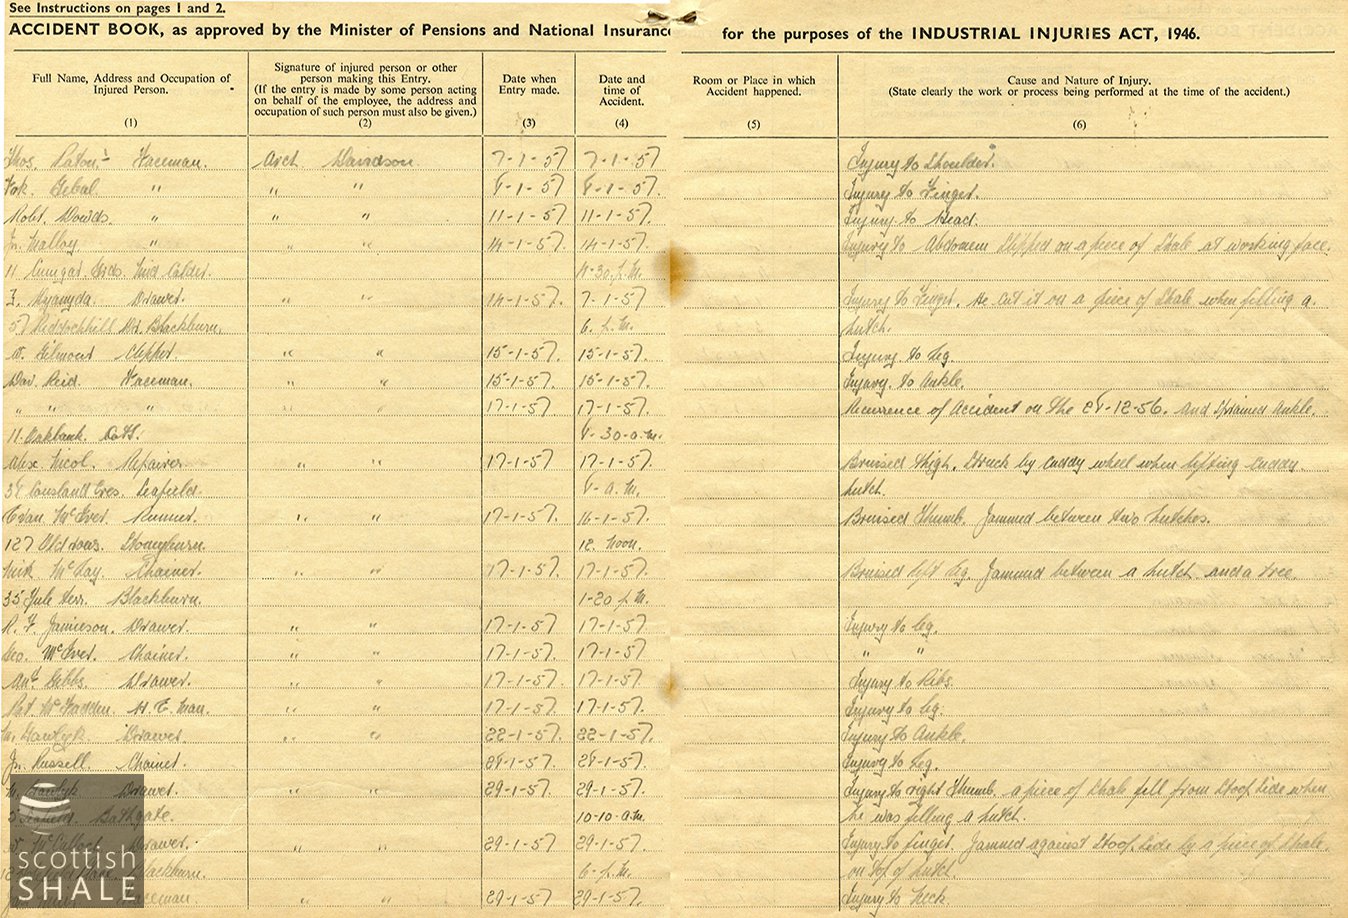 See Instructions on pages 1 and 2.
ACCIDENT BOOK, as approved by the Minister of Pensions and National Insurance for the purposes of the INDUSTRIAL INJURIES ACT, 1946.
Full Name, Address and Occupation of Injured Person. (1)
Signature of injured person or other person making this Entry. (If the entry is made by some person acting on behalf of the employee, the address and occupation of such person must also be given.) (2)
Date when Entry made. (3)
Date and time of Accident. (4)
Room or Place in which Accident happened. (5)
Cause and Nature of Injury. (State clearly the work or process being performed at the time of the accident.) (6)
Thos. Paton Faceman. Arch. Davidson 7-1-57 7-1-57 Injury to Shoulder.
" " " 8-1-57 8-1-57. Injury to Finger.
Robt. Dowds. " " " 11-1-57 11-1-57. Injury to Head.
Jn. Malloy " " " 14-1-57. 14-1-57. Injury to Abdomen Slipped on a piece of Shale at working face.
11 Mid Calder. 4-30 p.m.
Drawer. " " 14-1-57. 7-1-57 Injury to Finger. He cut it on a piece of Shale when filling a
57 Riddochhill Rd. Blackburn. 6. p.m. hutch.
W. Gilmour Clipper " " 15-1-57. 15-1-57. Injury. to Leg.
Dav. Reid. Faceman. " " 15-1-57. 15-1-57. Injury. to Ankle.
" " " " " 17-1-57 17-1-57. Recurrence of Accident on the 28-12-56. and Sprained Ankle.
11. Oakbank. Cotts. 8-30-a.m.
Alex. Nicol. Repairer " " 17-1-57 17-1-57. Bruised thigh. Struck by cuddy wheel when lifting cuddy
38 Cousland Cres. Seafield. 8- a.m. hutch.
Evan McIver. Runner. " " 17-1-57 16-1-57. Bruised Thumb. Jammed between two hutches.
127 Old rows. Stoneyburn. 12. noon.
Mick McKay. Chainer. " " 17-1-57. 17-1-57. Bruised left leg. Jammed between a hutch and a tree.
35 Yule terr. Blackburn. 1-20 p.m.
R. F. Jamieson. Drawer. " " 17-1-57. 17-1-57 Injury to leg.
Geo. McIver. Chainer. " " 17-1-57. 17-1-57 " "
Ant. Gibbs. Drawer. " " 17-1-57. 17-1-57. Injury to Ribs.
Pat McFadden. H. E. Man. " " 17-1-57. 17-1-57. Injury to leg.
Drawer " " 22-1-57. 22-1-57. Injury to Ankle.
Jn. Russell. Chainer. " " 28-1-57. 28-1-57. Injury to Leg.
Drawer. " " 29-1-57. 29-1-57. Injury to right Thumb. a piece of Shale fell from Stoop side when
Bathgate. 10-10-a.m. he was filling a hutch.
Drawer. " " 29-1-57 29-1-57. Injury to finger. Jammed against Stoop. side by a piece of Shale.
Blackburn. 6-p.m. on top of hutch.
Faceman. " " 29-1-57 29-1-57. Injury to neck
scottish
SHALE